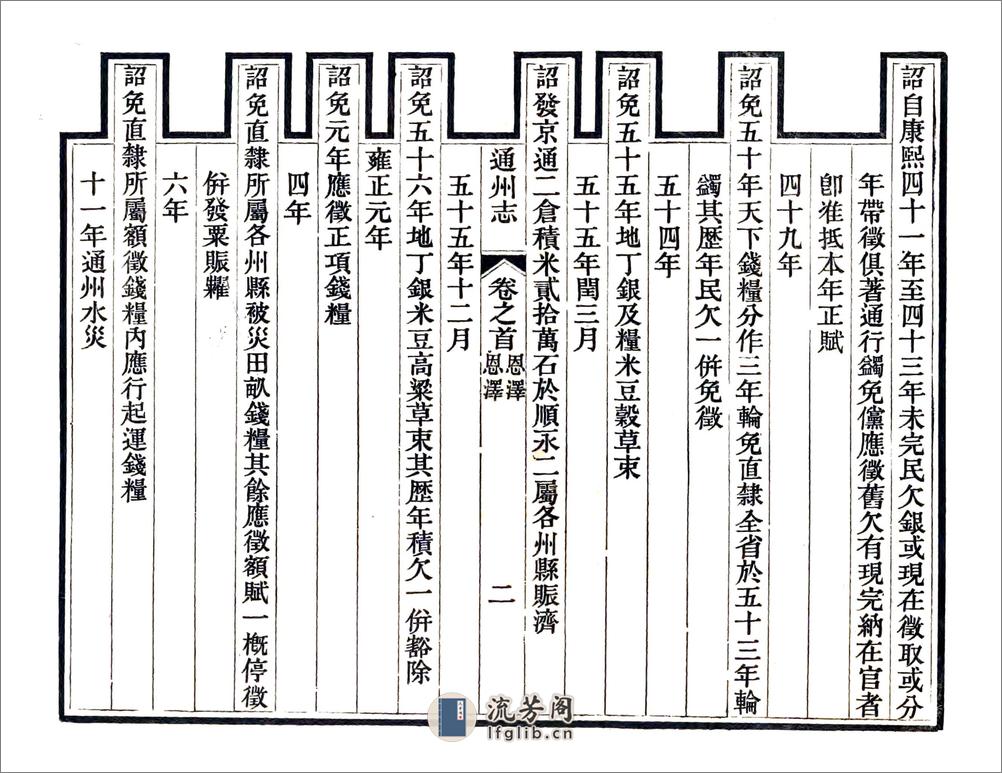 詔自康熙四十一年至四十三年未完民欠銀或現在徵取或分
年帶徵俱著通行蠲免儻應徵舊欠有現完納在官者
卽准抵本年正賦
四十九年
詔免五十年天下錢糧分作三年輪免直隸全省於五十三年輪
蠲其歷年民欠一併免徵
五十四年
詔免五十五年地丁銀及糧米豆穀草束
五十五年閏三月
詔發京通二倉積米貳拾萬石於順永二屬各州縣賑濟
通州志 卷之首 恩澤 恩澤 二
五十五年十二月
詔免五十六年地丁銀米豆高粱草束其歷年積欠一併豁除
雍正元年
詔免元年應徵正項錢糧
四年
詔免直隸所屬各州縣被災田畝錢糧其餘應徵額賦一概停徵
併發粟賑糶
六年
詔免直隸所屬額徵錢糧內應行起運錢糧
十一年通州水災
流芳阁
lfglib.cn